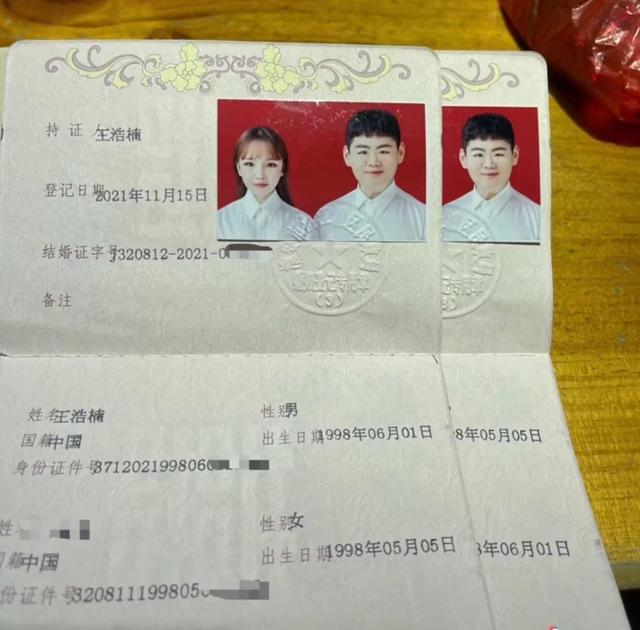 持证人王浩楠
登记日期2021年11月15日
结婚证字号J320812-2021-0
备注
婚姻登记专用章
(3)
姓名王浩楠
性别男
国籍中国
出生日期1998年06月01日
身份证件号3712021998060
姓
性别女
国籍中国
出生日期1998年05月05日
份证件号320811199805
8年05月05日
8年06月01日